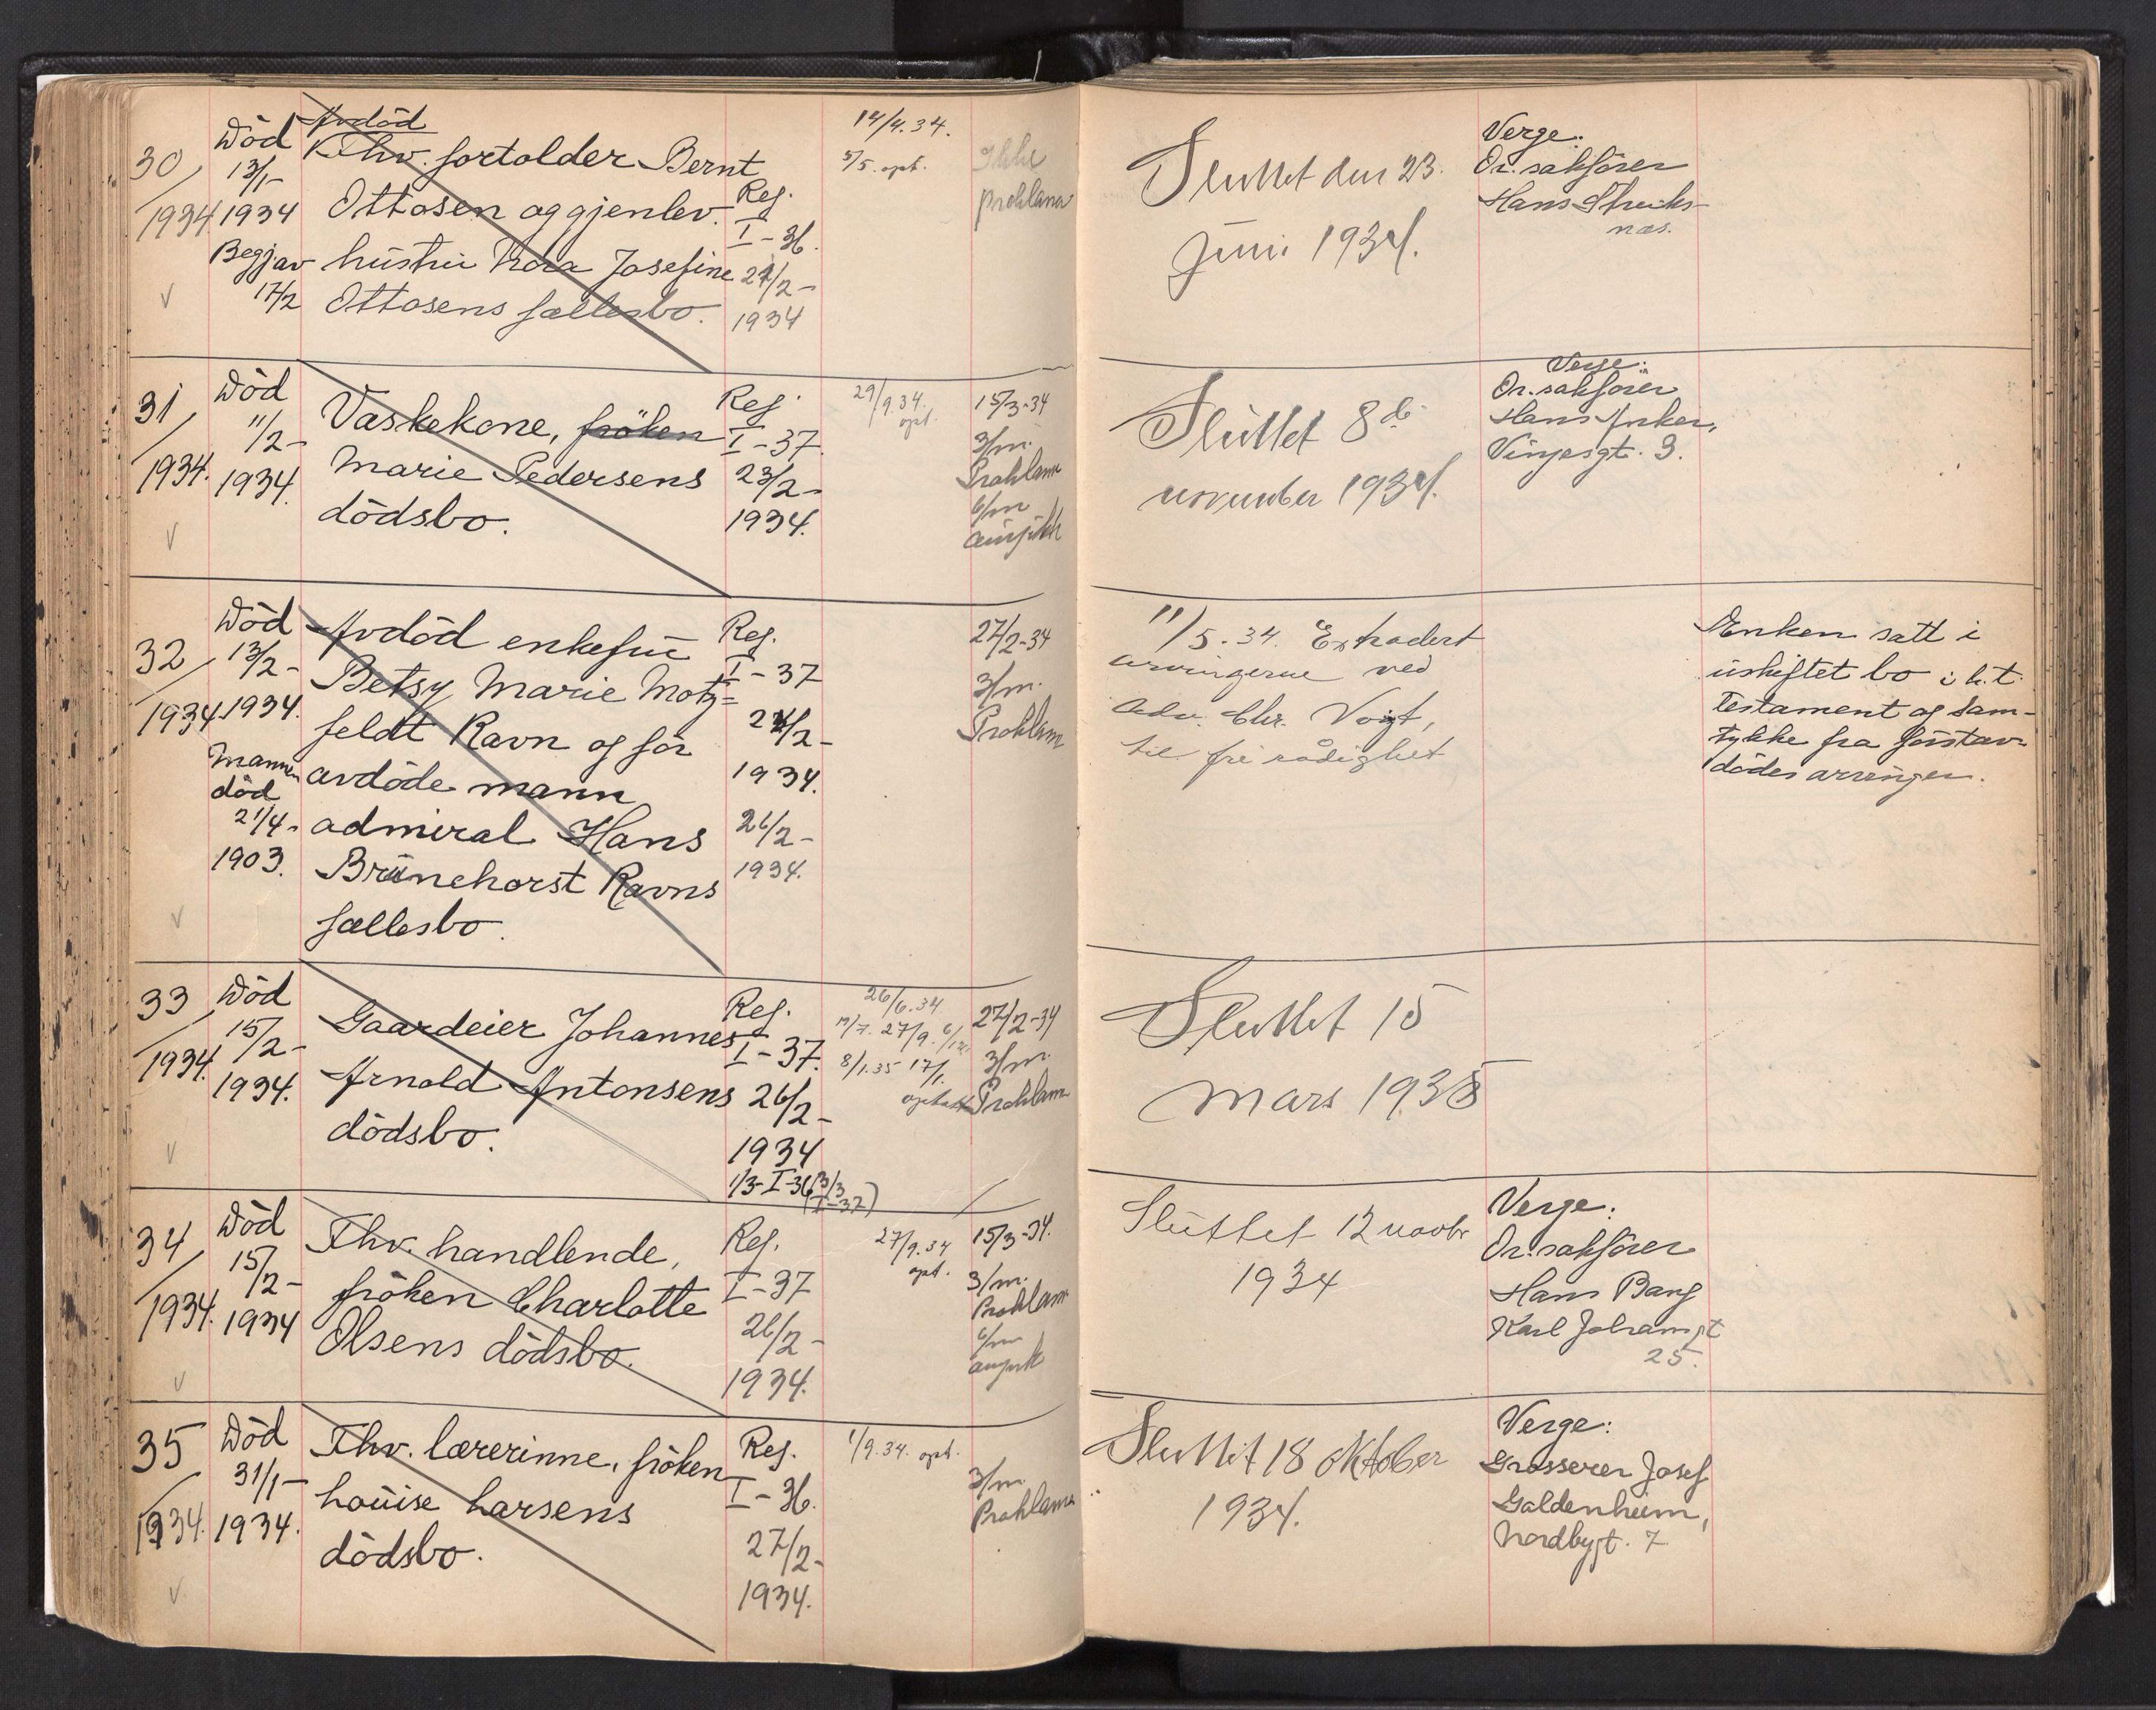 30
1934
Död
13/1-
1934
Begj av
17/2
Avdöd
Fhv. fortolder Bernt
Ottosen og gjenlev.
hustru Nora Josefine
Ottosens fællesbo.
Reg.
I - 36.
1934
14/4.34.
5/5. opt.
Ikke
proklama
Sluttet den 23.
juni 1934.
Verge:
Or. sakförer
Hans
31
1934.
Död
11/2-
1934.
Vaskekone, fröken
Marie Pedersens
dödsbo.
Reg.
I - 37.
23/2-
1934.
29/9.34.
opt.
15/3-34
3/m.
Proklama
6/m
Sluttet 8de
november 1934.
Verge:
Or. sakförer
Hans Anker,
Vinjesgt. 3.
32
1934
Död
13/2-
1934.
Mannen
död
21/4-
1903.
Avdöd enkefru
Betsy Marie Motz=
feldt Ravn og för
avdöde mann
admiral Hans
Brünehorst Ravns
fællesbo.
Reg.
I - 37
1934.
26/2-
1934.
27/2-34
3/m.
Proklama
11/5.34. Extradert
arvingerne ved
adv. Chr. Voigt,
til fri rådighet
Enken satt i
uskiftet bo i h.t.
Testament og sam-
tykke fra förstav-
dödes arvinger.
33
1934.
Död
15/2-
1934.
Gaardeier Johannes
Arnold Antonsens
dödsbo.
Reg.
I - 37.
26/2-
1934
1/3-I-36 (3/3
I-37)
26/6.34.
8/1.35 17/1.
27/2-34
3/m.
Proklama
Sluttet 15
mars 1935
34
1934.
Död
15/2-
1934
Fhv. handlende,
fröken Charlotte
Olsens dödsbo.
Reg.
I - 37
26/2-
1934.
27/9.34
opt.
15/3-34.
3/m.
Proklama
6/m
Sluttet 12 novbr
1934
Verge:
Or. sakförer
Hans Bang
Karl Johansgt
25.
35
1934.
Död
31/1-
1934.
Fhv. lærerinne, fröken
Louise Larsens
dödsbo.
Reg.
I - 36.
27/2-
1934.
1/9.34. opt.
3/m
Proklama
Sluttet 18 oktober
1934.
Verge:
Grosserer Josef
Goldenheim,
Nordbygt. 7